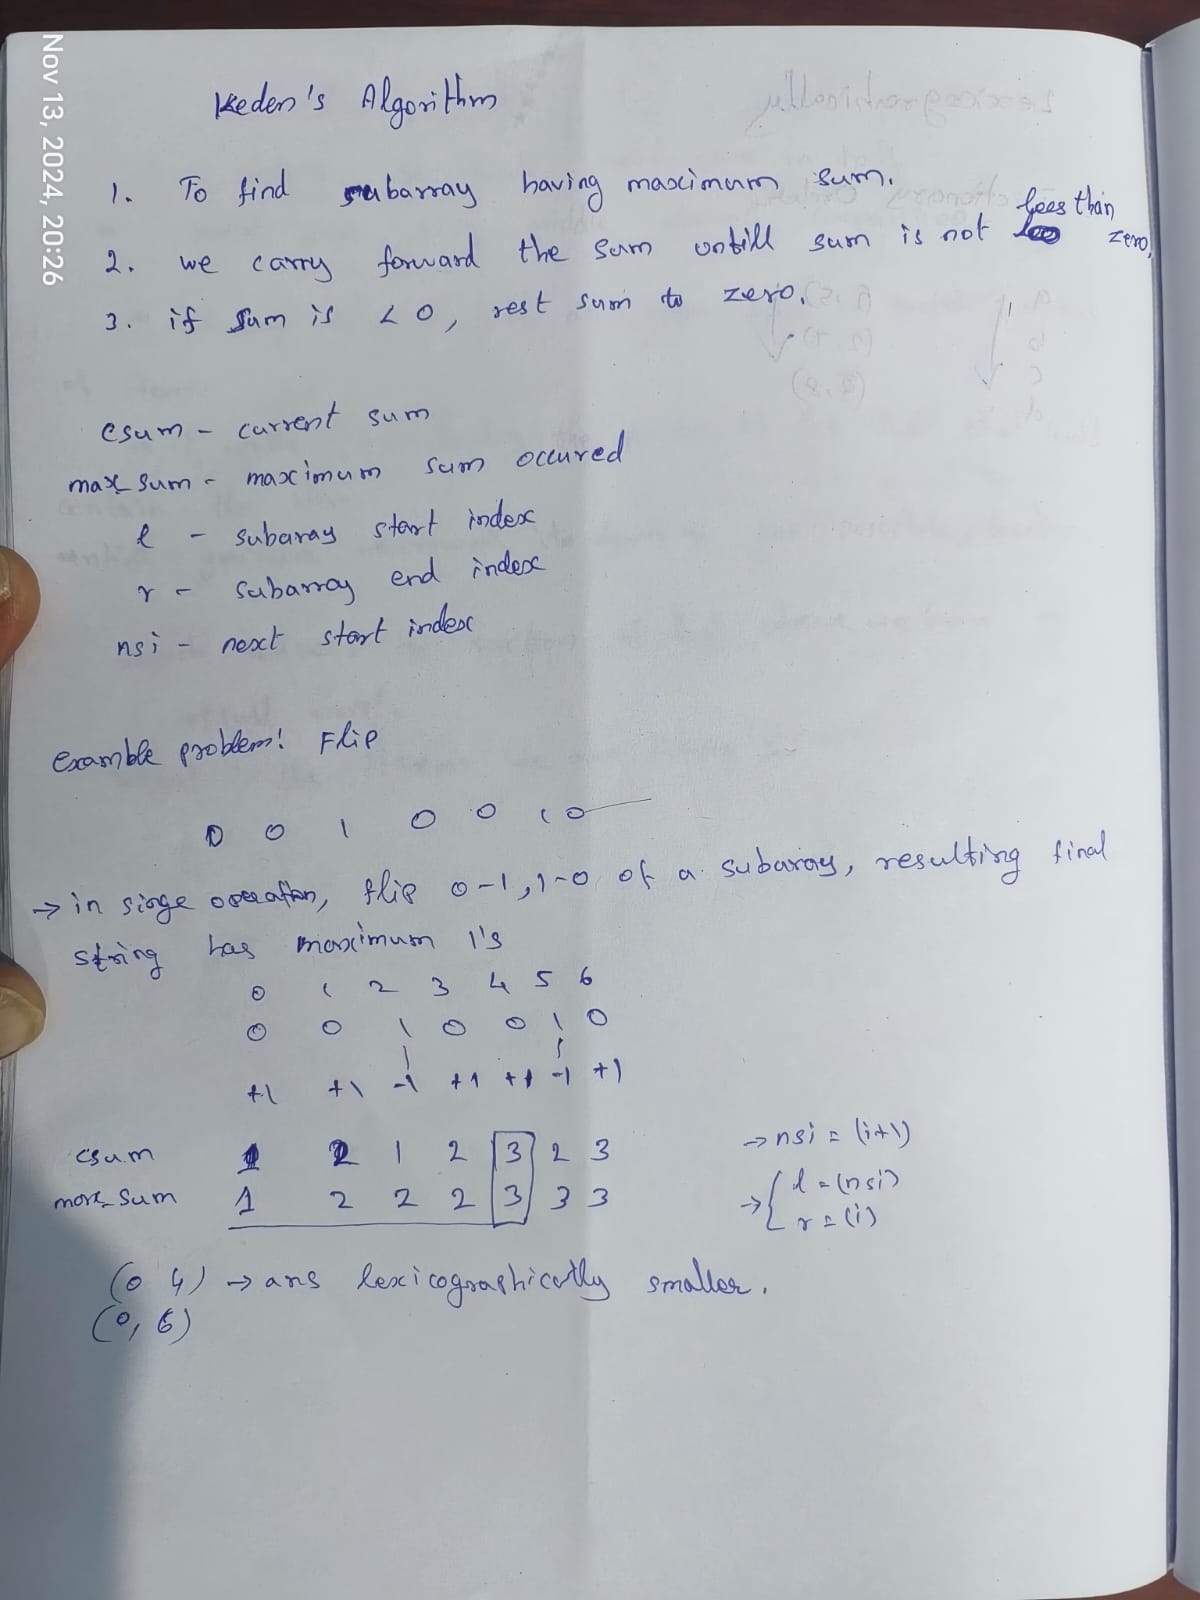 Nov 13, 2024, 20:26
Keden's Algorithm
1. To find subarray having maximum sum.
2. we carry forward the sum untill sum is not less than zero.
3. if sum is < 0, rest sum to zero.
csum - current sum
max_sum - maximum sum occured
l - subaray start index
r - subarray end index
nsi - next start index
Examble problem! Flip
0 0 1 0 0 1 0
→ in singe operation, flip 0-1, 1-0 of a subaray, resulting final
string has maximum 1's
0 1 2 3 4 5 6
0 0 1 0 0 1 0
+1 +1 -1 +1 +1 -1 +1
csum 1 2 1 2 3 2 3 → nsi = (i+1)
max_sum 1 2 2 2 3 3 3 → { l = (nsi)
r = (i)
(0 4) → ans lexicographically smaller.
(0, 6)